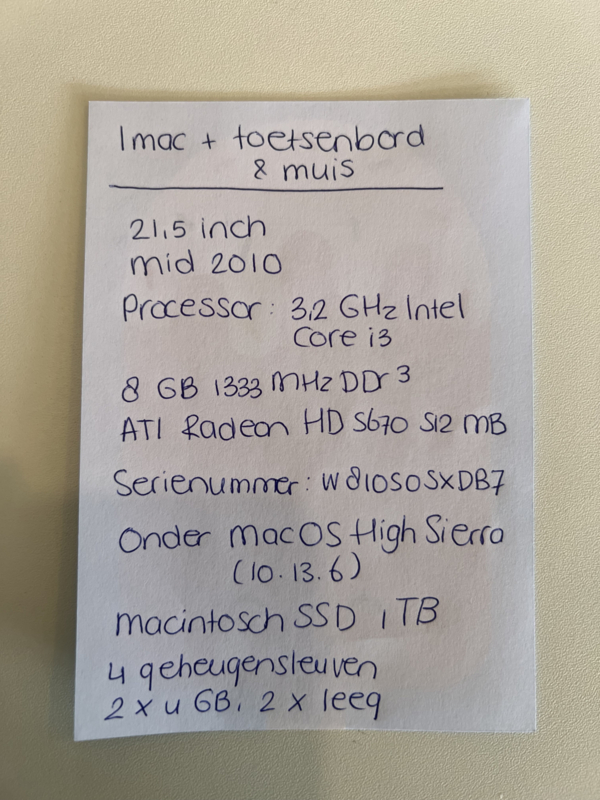 Imac + toetsenbord
& muis
21,5 inch
mid 2010
Processor: 3,2 GHz Intel
Core i3
8 GB 1333 MHz DDr 3
ATI Radeon HD 5670 512 MB
Serienummer: W81050SXDB7
Onder macOS High Sierra
(10.13.6)
macintosch SSD 1 TB
4 geheugensleuven
2 x 4 GB, 2 x leeg